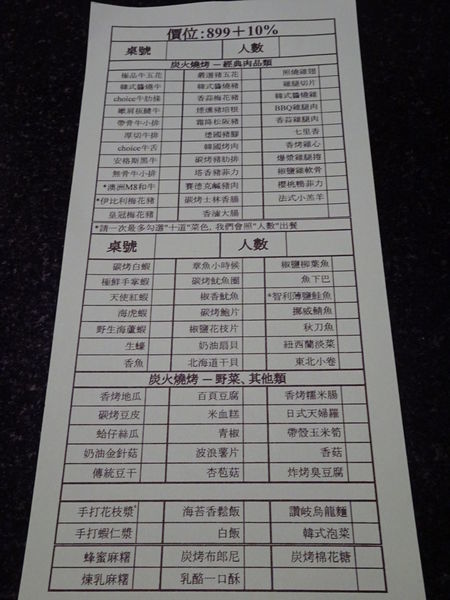 價位:899＋10%
桌號 人數
炭火燒烤 － 經典肉品類
極品牛五花 嚴選豬五花 照燒雞翅
韓式醬燒牛 韓式醬燒豬 雞腿切片
choice牛肋條 香蒜梅花豬 韓式醬燒雞
嫩肩板腱牛 煙燻豬培根 BBQ雞腿肉
帶骨牛小排 霜降松阪豬 香蒜雞腿肉
厚切牛排 德國豬腳 七里香
choice牛舌 韓國烤肉 香烤雞心
安格斯黑牛 碳烤豬肋排 爆漿雞腿捲
無骨牛小排 塔香豬菲力 椒鹽雞軟骨
*澳洲M8和牛 賽德克鹹豬肉 櫻桃鴨菲力
*伊比利梅花豬 碳烤士林香腸 法式小羔羊
皇冠梅花豬 香滷大腸
*請一次最多勾選"十道"菜色, 我們會照"人數"出餐
桌號 人數
碳烤白蝦 章魚小時候 椒鹽柳葉魚
極鮮手掌蝦 碳烤魷魚圈 魚下巴
天使紅蝦 椒香魷魚 *智利薄鹽鮭魚
海虎蝦 碳烤鮑片 挪威鯖魚
野生海蘆蝦 椒鹽花枝片 秋刀魚
生蠔 奶油扇貝 紐西蘭淡菜
香魚 北海道干貝 東北小卷
炭火燒烤 － 野菜、其他類
香烤地瓜 百頁豆腐 香烤糯米腸
碳烤豆皮 米血糕 日式天婦羅
蛤仔絲瓜 青椒 帶殼玉米筍
奶油金針菇 波浪薯片 香菇
傳統豆干 杏苞菇 炸烤臭豆腐
手打花枝漿 海苔香鬆飯 讚岐烏龍麵
手打蝦仁漿 白飯 韓式泡菜
蜂蜜麻糬 炭烤布郎尼 炭烤棉花糖
煉乳麻糬 乳酪一口酥